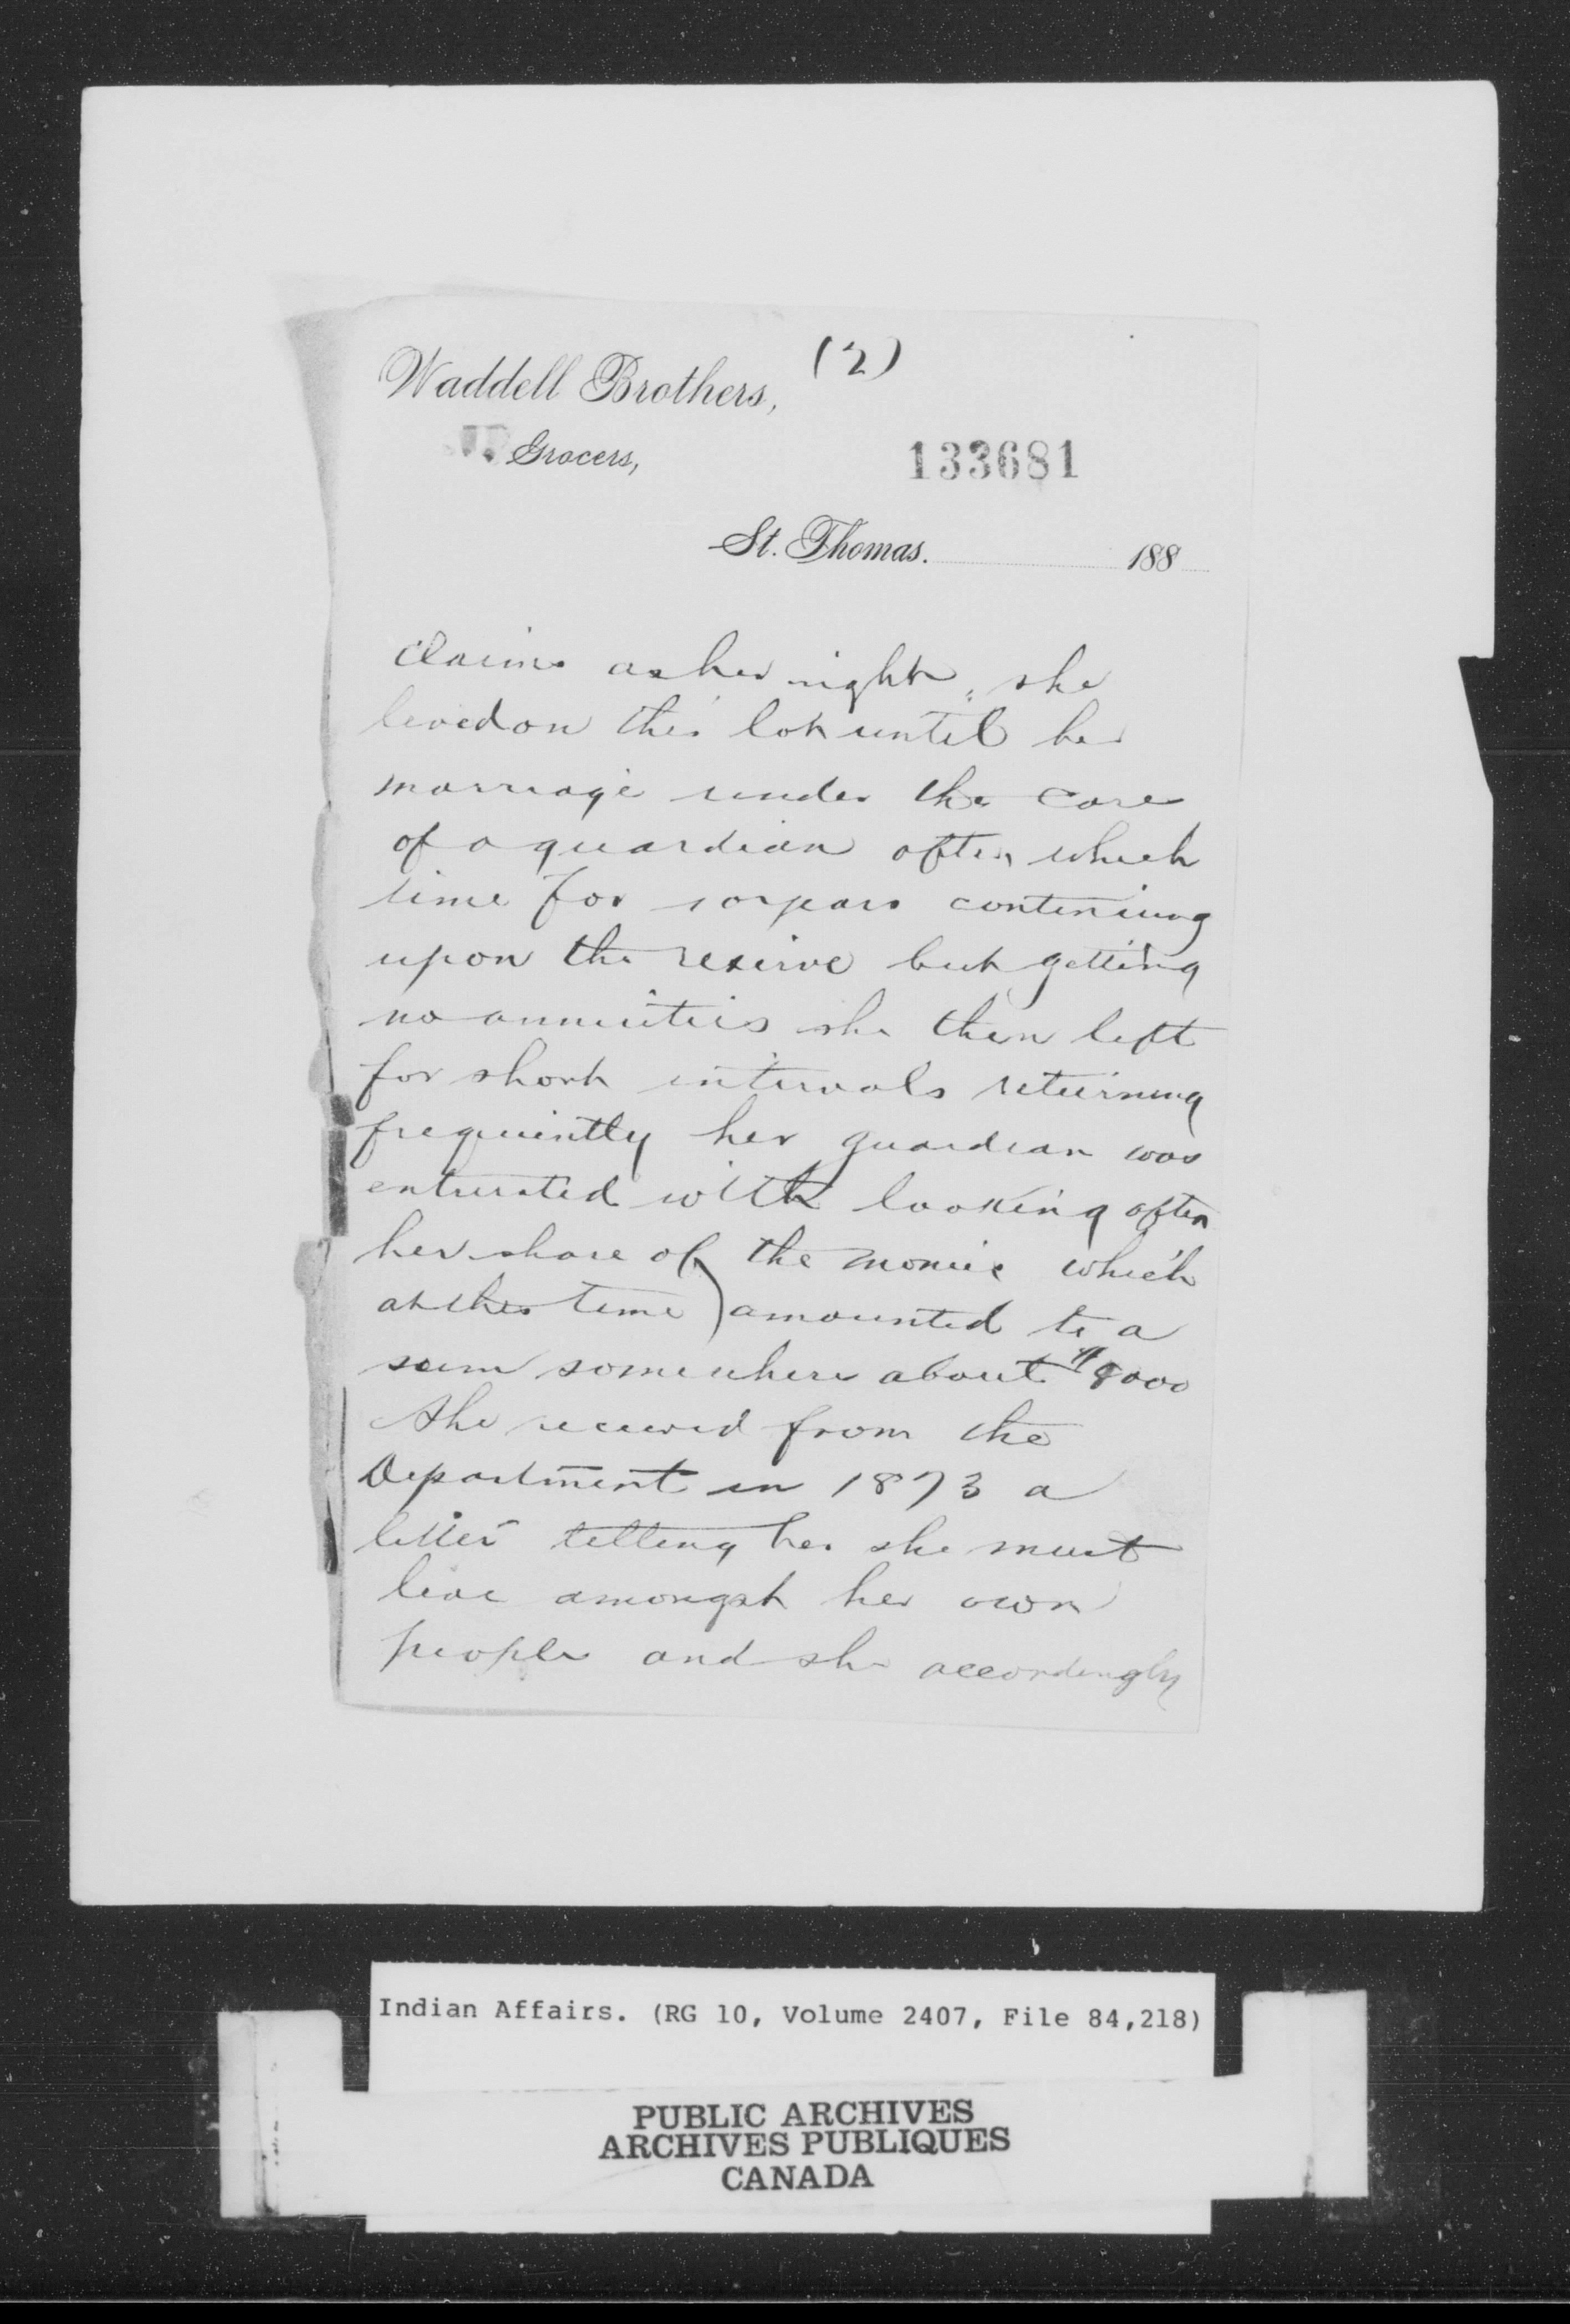 (2)
Waddell Brothers,
Grocers,
133681
St. Thomas. 188
claims as her right, she
lived on this lot until her
marriage under the care
of a guardian after which
time for 10 years continuing
upon the reserve but getting
no annuities she then left
for short intervals returning
frequently her guardian was
entrusted with looking after
her share of the monies which
at this time) amounted to a
sum somewhere about $8000
She received from the
Department in 1873 a
letter telling her she must
live amongst her own
people and she accordingly
Indian Affairs. (RG 10, Volume 2407, File 84,218)
PUBLIC ARCHIVES
ARCHIVES PUBLIQUES
CANADA